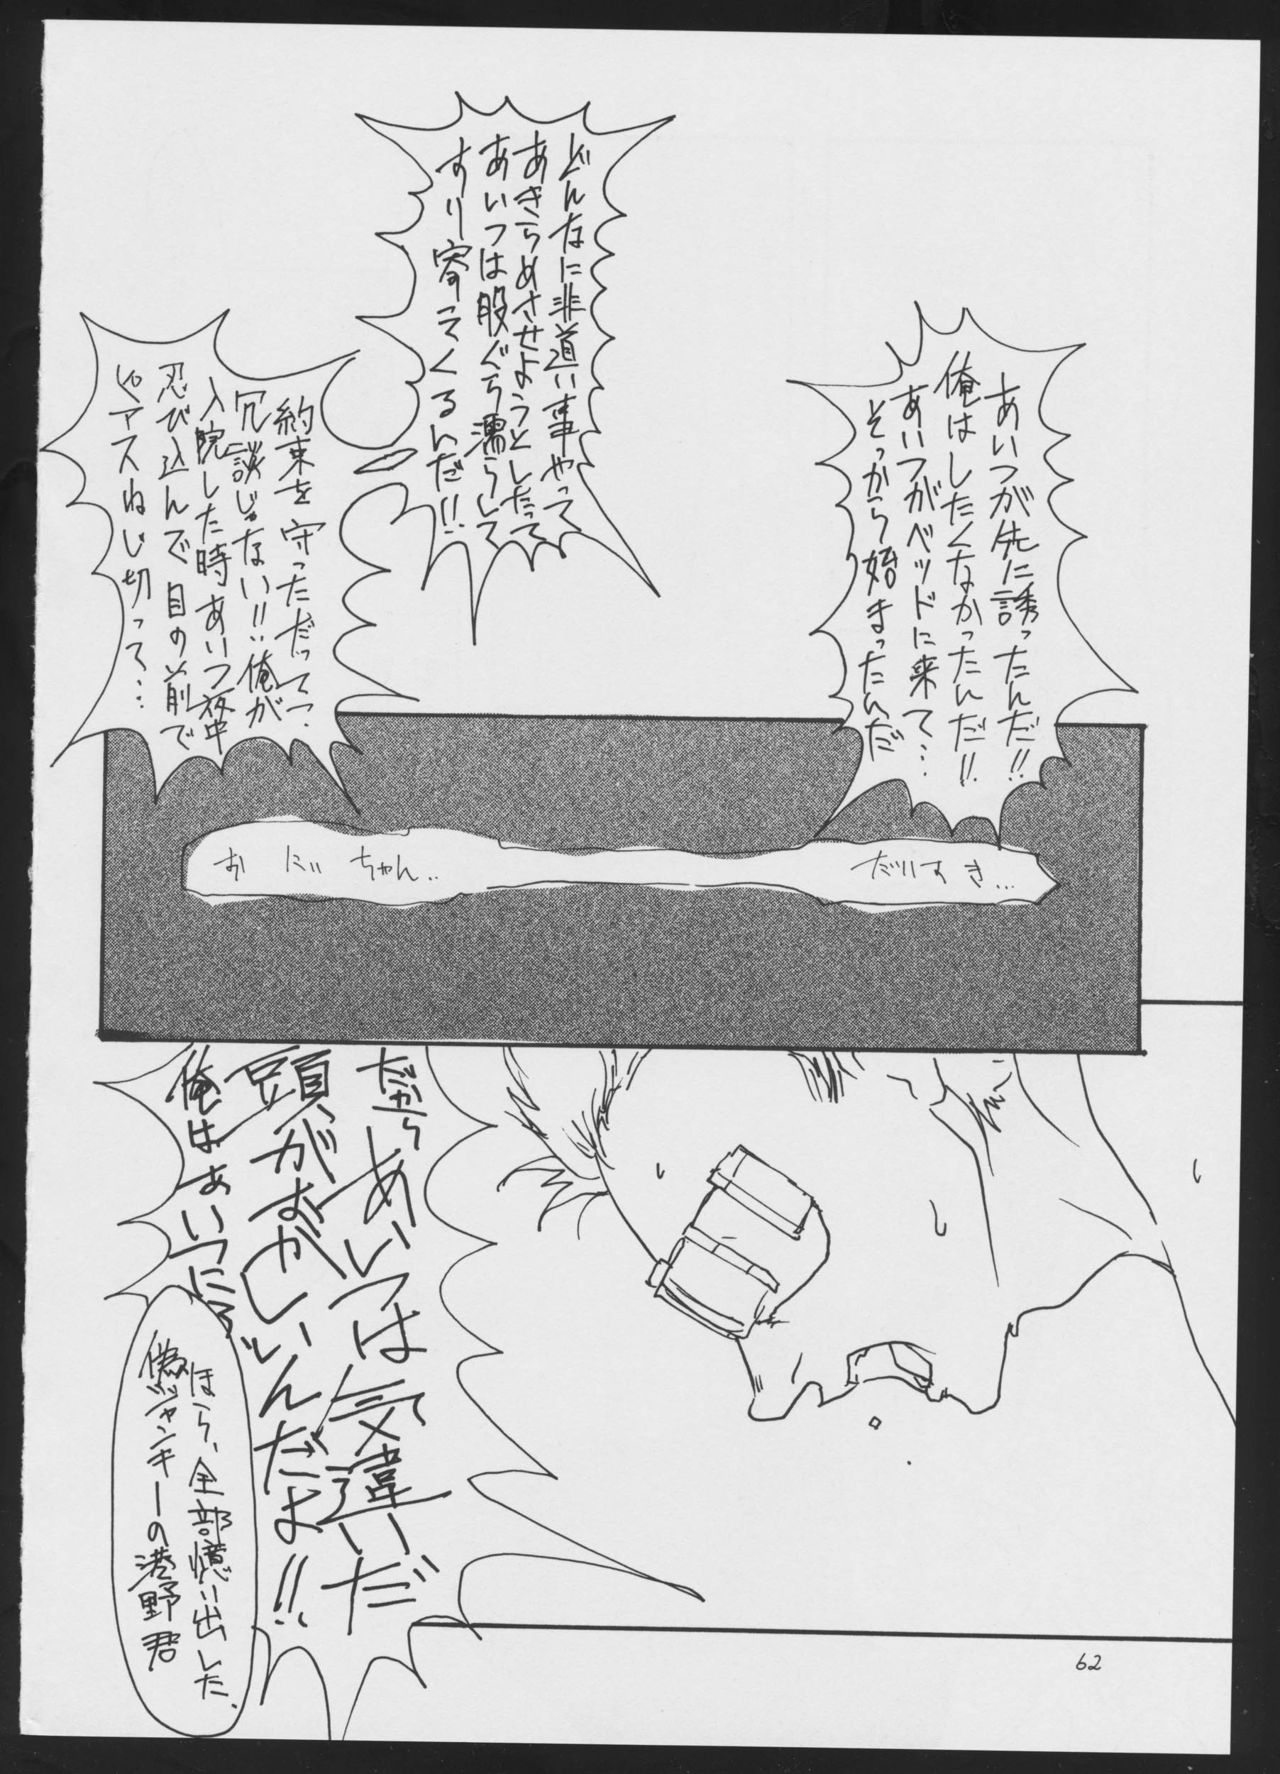 あいつが先に誘ったんだ!!
俺はしたくなかったんだ!!
あいつがベッドに来て…
そっから始まったんだ
どんなに非道い事やって
あきらめさせようとしたって
あいつは股ぐら濡らして
すり寄ってくるんだ!!
約束を守っただって?
冗談じゃない!!俺が
入院した時あいつ夜中
忍び込んで目の前で
ピアスねじ切って…
だいすき…
おにいちゃん..
だから
あいつは気違いだ
頭がおかしいんだよ!!
俺はあいつに
ほら、全部憶い出した。
偽ジャンキーの港野君
62